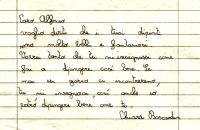 Caro Alfonso
voglio dirti che i tuoi dipinti
sono molto belli e fantasiosi.
Vorrei tanto che tu mi insegnassi come
fai a dipingere così bene. Se
mai un giorno ci incontreremo,
tu mi insegnerai, così anch'io
potrò dipingere bene come te.
Chiara